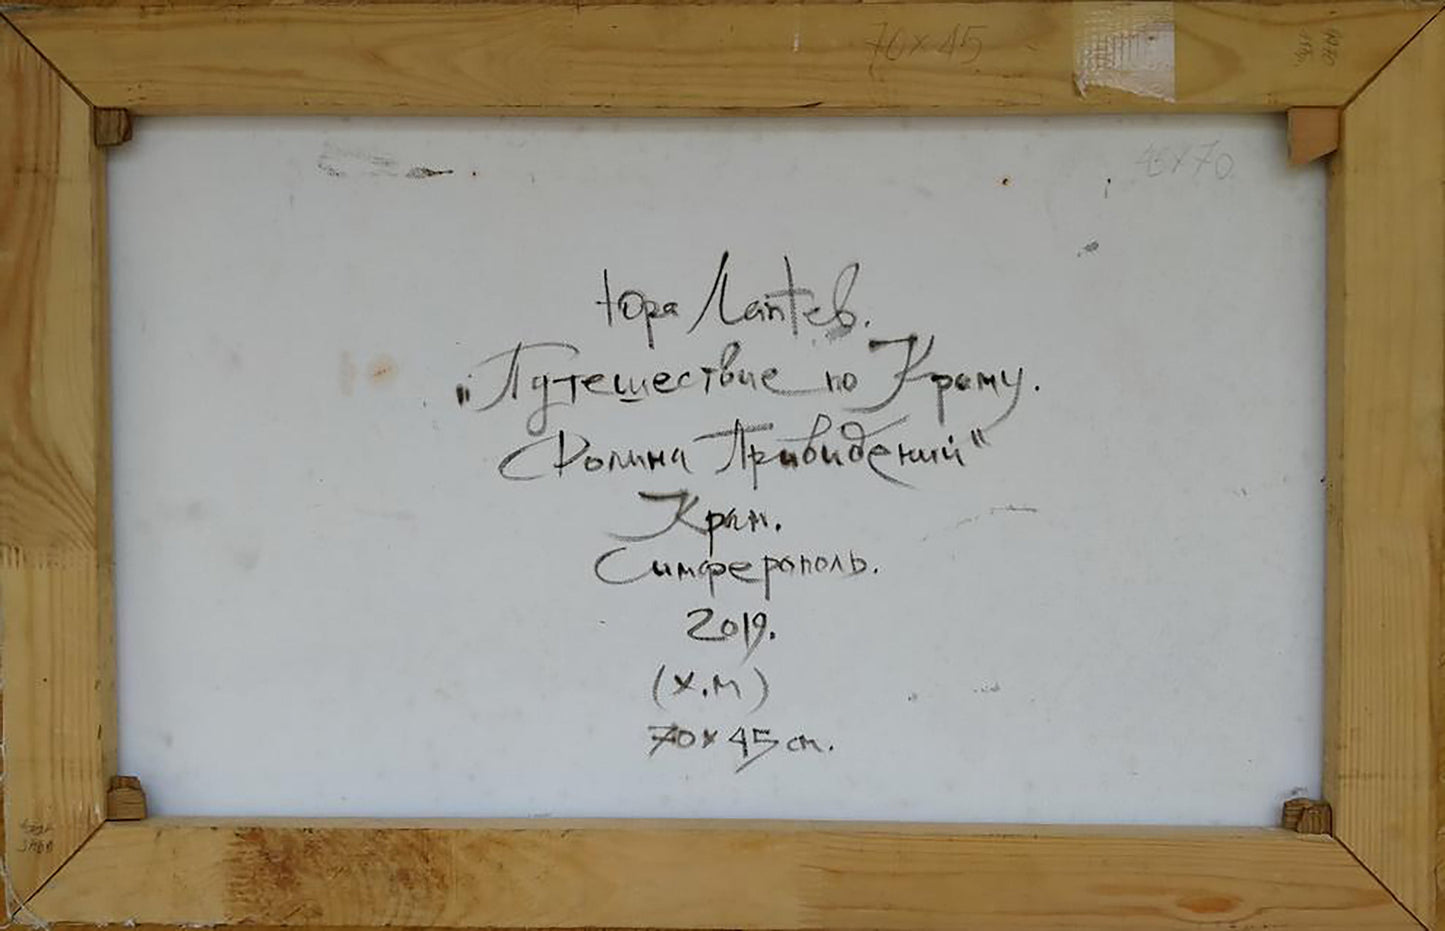 70×45
45×70
Юра Лаптев.
„Путешествие по Крыму.
Долина Привидений"
Крым.
Симферополь.
2019.
(х.м)
70×45 см.